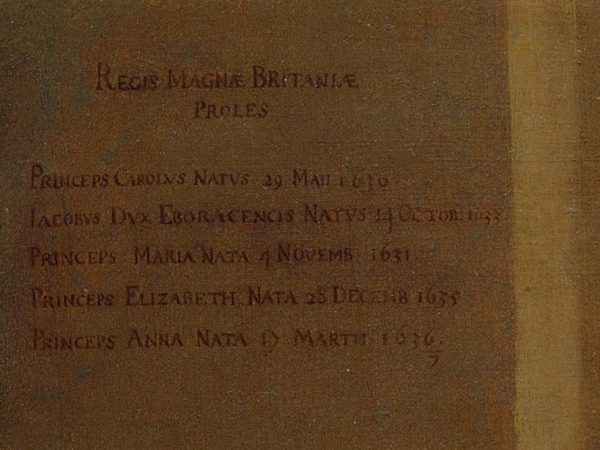 REGIS MAGNÆ BRITANIÆ
PROLES
PRINCEPS CAROLVS NATVS 29 MAII 1630
IACOBVS DVX EBORACENCIS NATVS 14 OCTOB: 1633
PRINCEPS MARIA NATA 4 NOVEMB: 1631
PRINCEPS ELIZABETH NATA 28 DECEMB 1635
PRINCEPS ANNA NATA 17 MARTII 1636/7